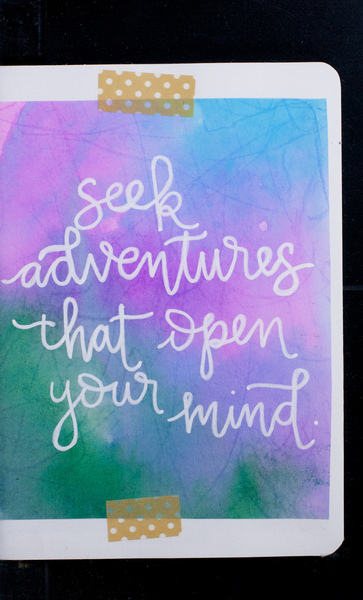 seek
adventures
that open
your mind.